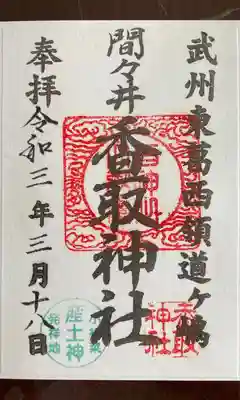 武州東葛西領道ヶ嶋
間々井
香取神社
奉拝令和三年三月十八日
香取神社
産土神
発祥地